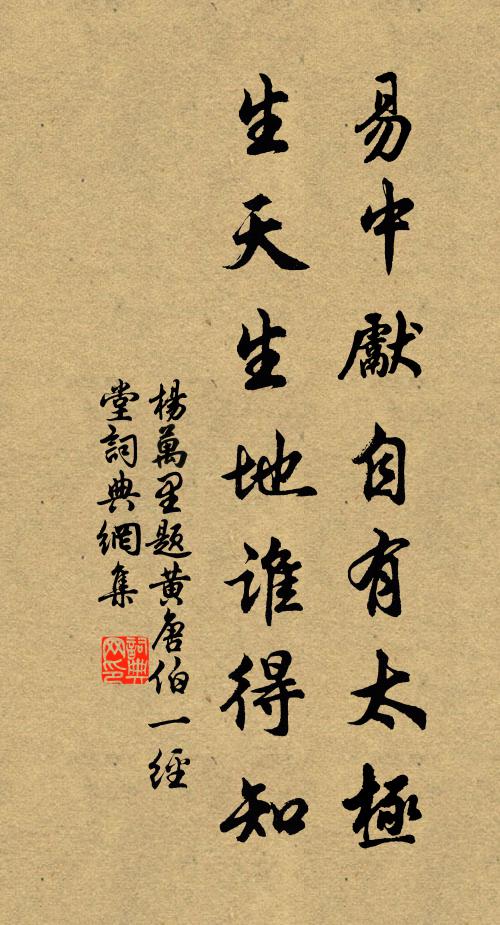 易中獻自有太極
生天生地谁得知
楊萬里题黄唐伯一經
堂詞典網集
詞典网印